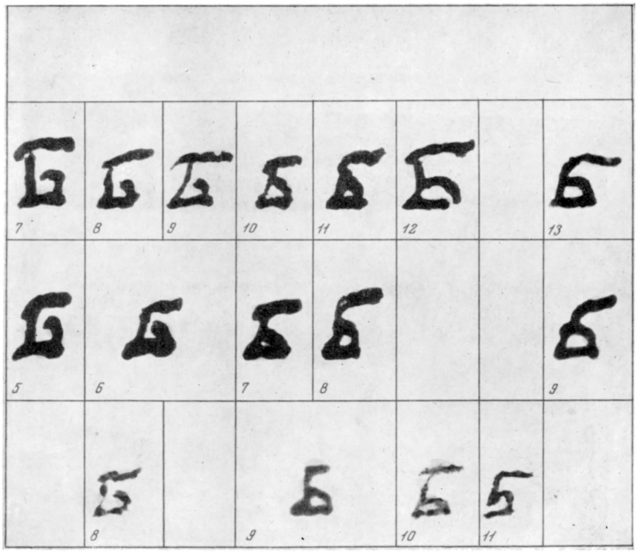 Б Б Б Б Б Б Б
7 8 9 10 11 12 13
Б Б Б Б Б
5 6 7 8 9
Б Б Б Б
8 9 10 11